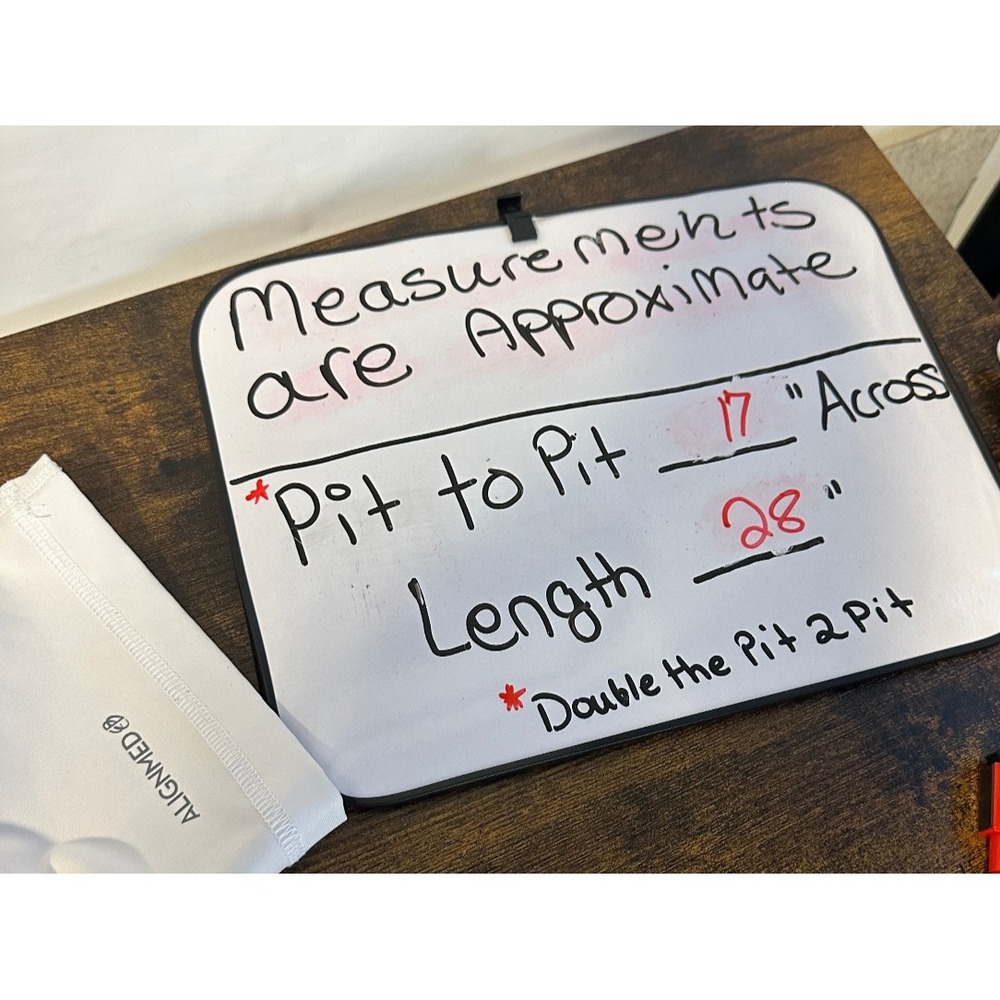 Measurements
are Approximate
*Pit to Pit 17 "Across
Length 28"
*Double the Pit 2 Pit
ALIGNMED